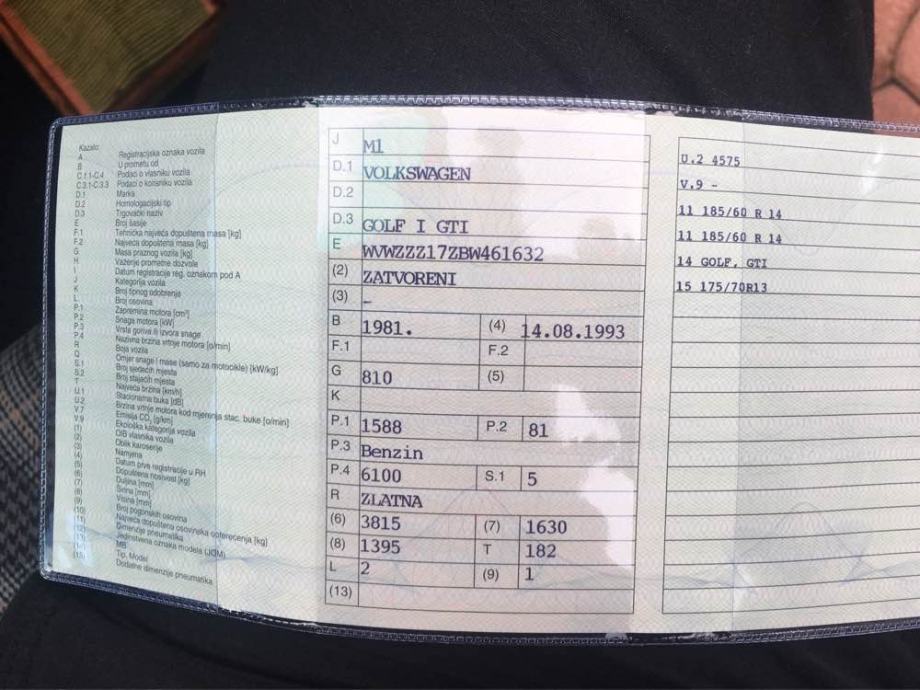 Kazalo:
A Registracijska oznaka vozila
B U prometu od
C.1.1-C.4 Podaci o vlasniku vozila
C.3.1-C.3.3 Podaci o korisniku vozila
D.1 Marka
D.2 Homologacijski tip
D.3 Trgovački naziv
E Broj šasije
F.1 Tehnička najveća dopuštena masa [kg]
F.2 Najveća dopuštena masa [kg]
G Masa praznog vozila [kg]
H Važenje prometne dozvole
I Datum registracije reg. oznakom pod A
J Kategorija vozila
K Broj tipnog odobrenja
L Broj osovina
P.1 Zapremina motora [cm³]
P.2 Snaga motora [kW]
P.3 Vrsta goriva ili izvora snage
P.4 Nazivna brzina vrtnje motora [o/min]
R Boja vozila
Q Omjer snage i mase (samo za motocikle) [kW/kg]
S.1 Broj sjedećih mjesta
S.2 Broj stajaćih mjesta
T Najveća brzina [km/h]
U.1 Stacionarna buka [dB]
U.2 Brzina vrtnje motora kod mjerenja stac. buke [o/min]
V.7 Emisija CO₂ [g/km]
V.9 Ekološka kategorija vozila
(1) OIB vlasnika vozila
(2) Oblik karoserije
(3) Namjena
(4) Datum prve registracije u RH
(5) Dopuštena nosivost [kg]
(6) Duljina [mm]
(7) Širina [mm]
(8) Visina [mm]
(9) Broj pogonskih osovina
(10) Najveća dopuštena osovinska opterećenja [kg]
(11) Dimenzije pneumatika
Jedinstvena oznaka modela (JOM)
MB
Tip, Model
(15) Dodatne dimenzije pneumatika
J M1
D.1 VOLKSWAGEN
D.2
D.3 GOLF I GTI
E WVWZZZ17ZBW461632
(2) ZATVORENI
(3) -
B 1981. (4) 14.08.1993
F.1 F.2
G 810 (5)
K
P.1 1588 P.2 81
P.3 Benzin
P.4 6100 S.1 5
R ZLATNA
(6) 3815 (7) 1630
(8) 1395 T 182
L 2 (9) 1
(13)
U.2 4575
V.9 -
11 185/60 R 14
11 185/60 R 14
14 GOLF, GTI
15 175/70R13